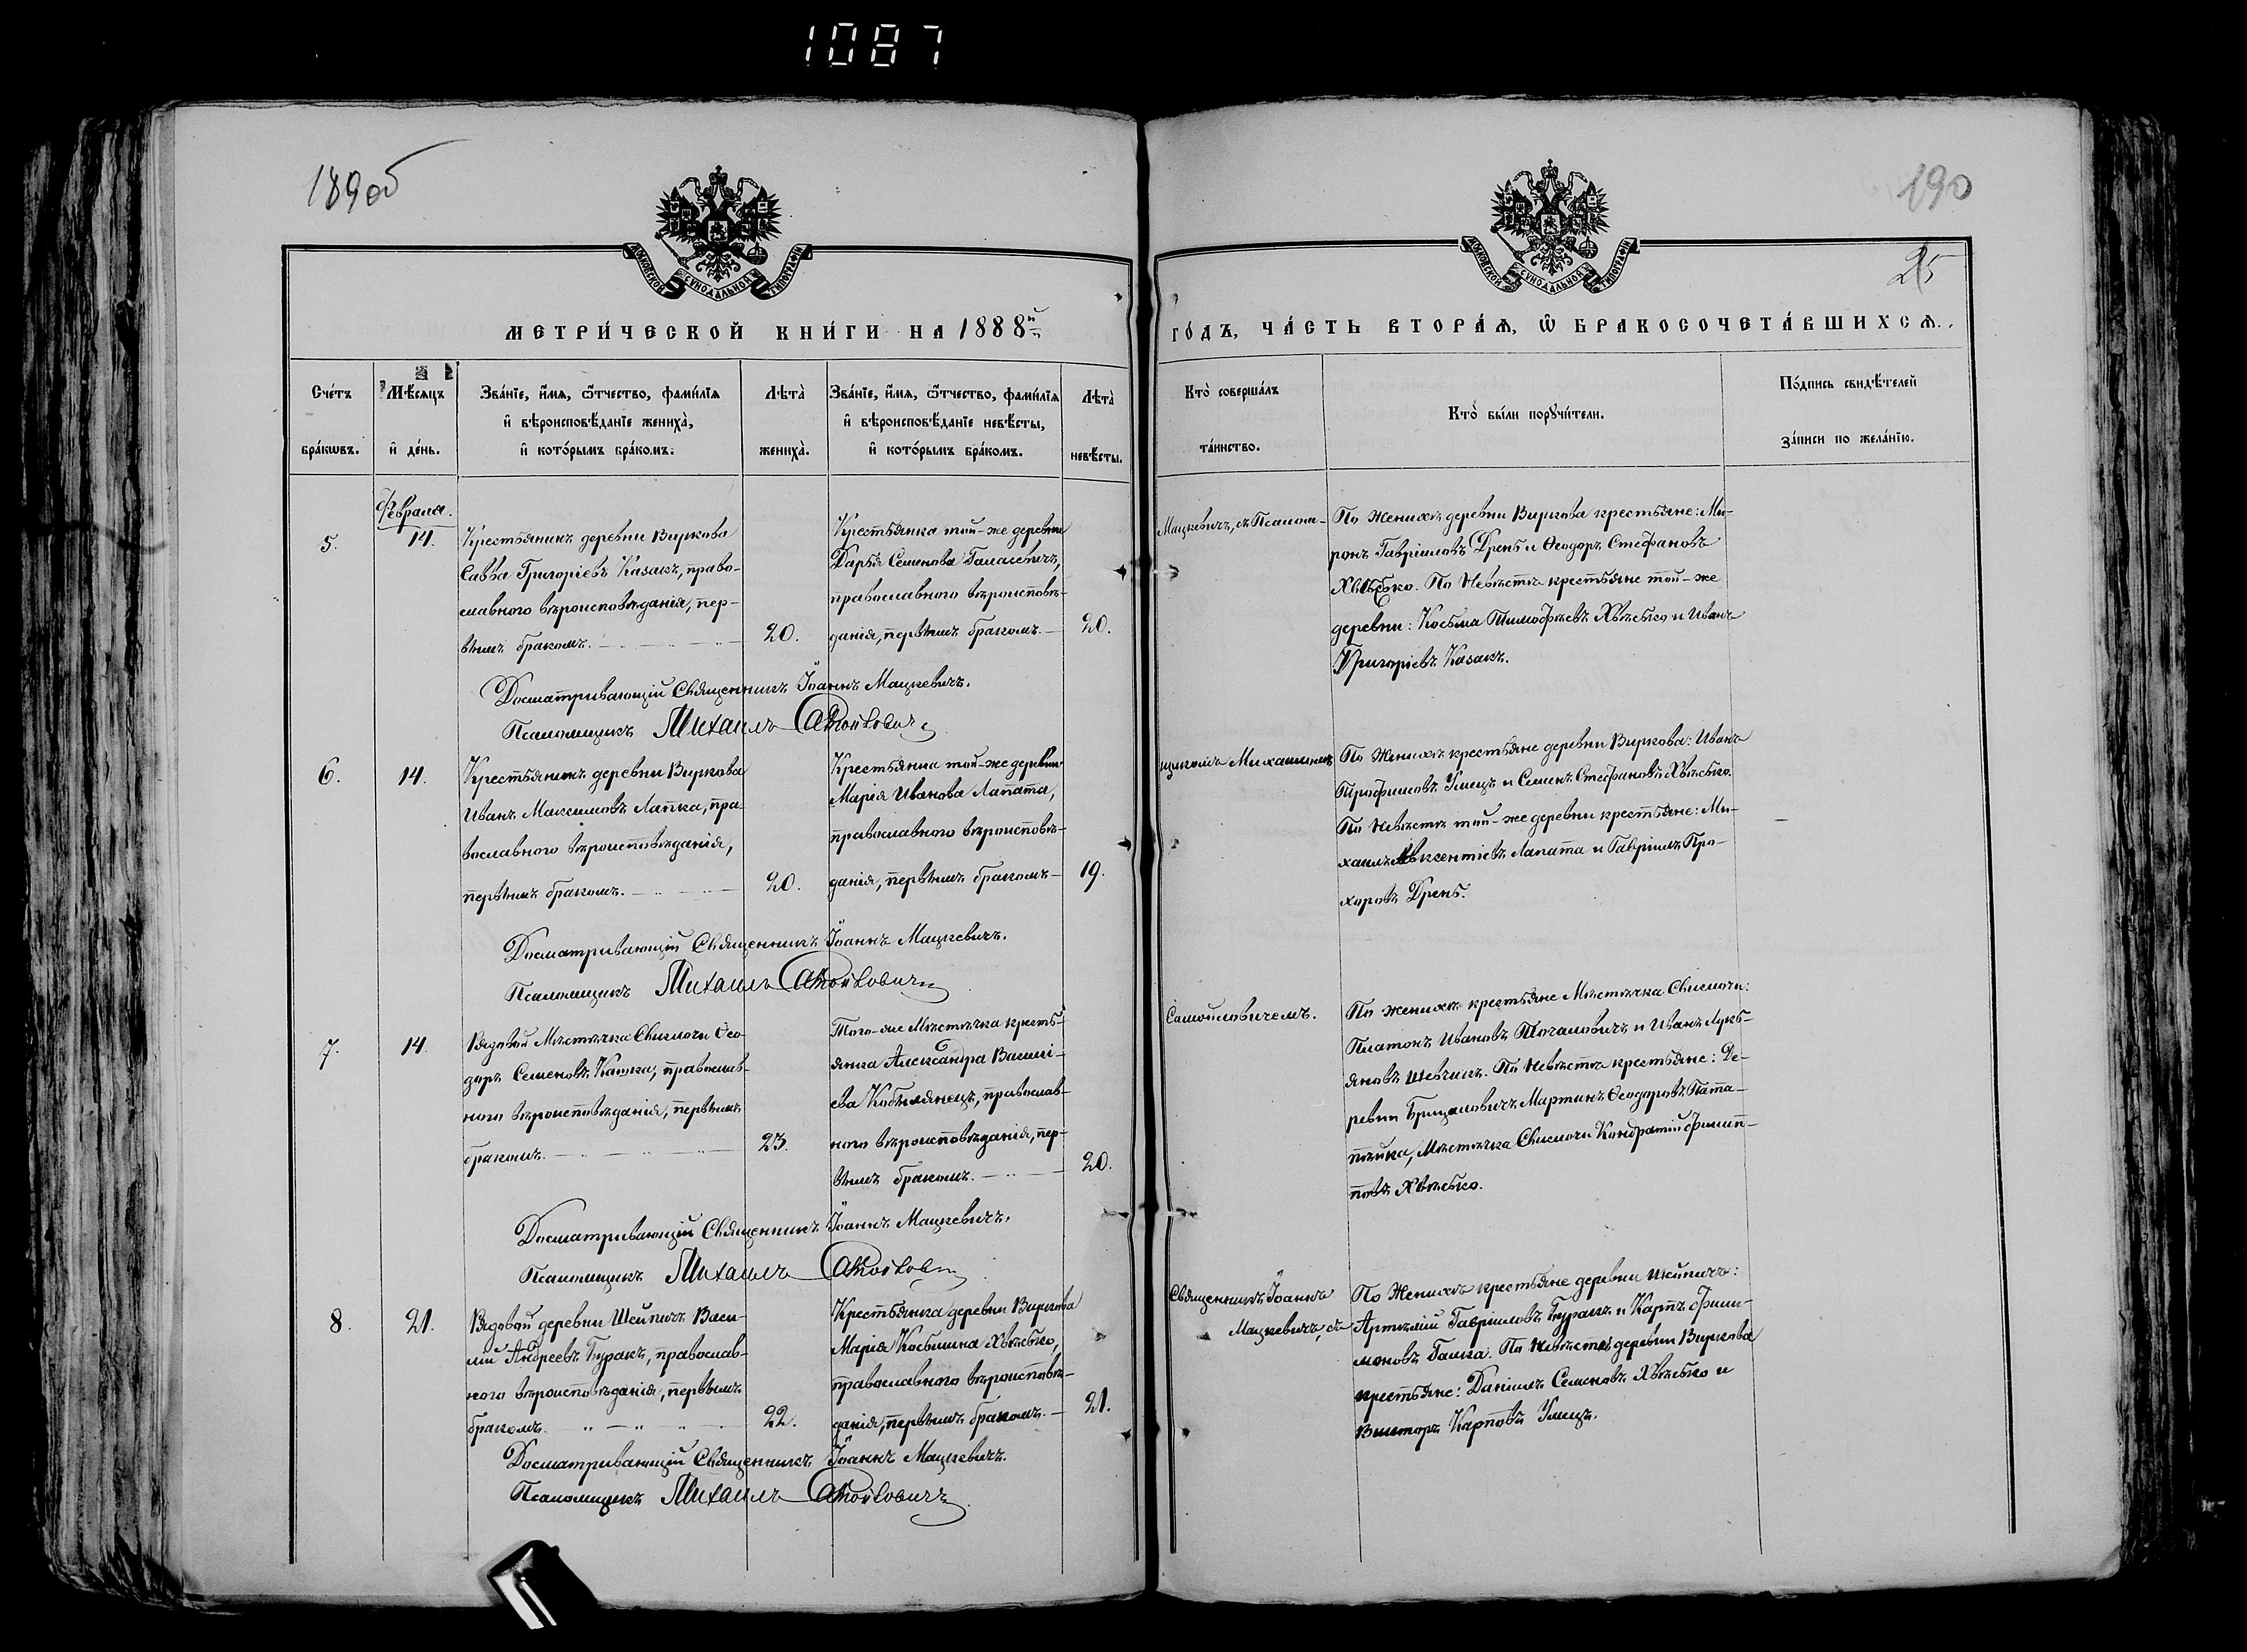 1087
189об
190
25
МОСКОВСКОЙ СѴНОДАЛЬНОЙ ТИПОГРАФІИ
МОСКОВСКОЙ СѴНОДАЛЬНОЙ ТИПОГРАФІИ
МЕТРИ́ЧЕСКОЙ КНИ́ГИ НА 1888й
ГО́ДЪ, ЧА́СТЬ ВТОРА́Ѧ, Ѽ БРАКОСОЧЕТА́ВШИХСѦ.
Сче́тъ
бра́кѡвъ.
Мѣ́сяцъ
и҆ де́нь.
Зва́нїе, и҆́мѧ, ѻ҆́тчество, фами́лїѧ
и҆ вѣроисповѣ́данїе жениха̀,
и҆ кото́рымъ бра́комъ.
Лѣта̀
жениха̀.
Зва́нїе, и҆́мѧ, ѻ҆́тчество, фами́лїѧ
и҆ вѣроисповѣ́данїе невѣ́сты,
и҆ кото́рымъ бра́комъ.
Лѣта̀
невѣ́сты.
Кто̀ соверша́лъ
та́инство.
Кто̀ бы́ли порꙋчи́тели.
По́дпись свидѣ́телей
за́писи по жела́нїю.
Февраля.
5.
14.
Крестьянинъ деревни Виркова
Савва Григоріевъ Казакъ, право-
славнаго вѣроисповѣданія, пер-
вымъ бракомъ.
20.
Крестьянка той-же деревни
Дарья Семенова Галакевичъ,
православнаго вѣроисповѣ-
данія, первымъ бракомъ.
20.
Мацкевичъ, съ Псалом-
По Женихѣ деревни Виркова крестьяне: Ми-
ронъ Гавріиловъ Дрень и Ѳеодоръ Стефановъ
Хвѣсько. По Невѣстѣ крестьяне той-же
деревни: Косьма Тимофѣевъ Хвѣсько и Иванъ
Григоріевъ Казакъ.
Досматривающій Священникъ Іоаннъ Мацкевичъ.
Псаломщикъ Михаилъ Самойловичъ
6.
14.
Крестьянинъ деревни Виркова
Иванъ Максимовъ Лапка, пра-
вославнаго вѣроисповѣданія,
первымъ бракомъ.
20.
Крестьянка той-же деревни
Марія Иванова Лапата,
православнаго вѣроисповѣ-
данія, первымъ бракомъ
19.
щикомъ Михаиломъ
По Женихѣ крестьяне деревни Виркова: Иванъ
Трофимовъ Умецъ и Семенъ Стефановъ Хвѣсько.
По Невѣстѣ той-же деревни крестьяне: Ми-
хаилъ Авксентіевъ Лапата и Гавріилъ Про-
хоровъ Дрень.
Досматривающій Священникъ Іоаннъ Мацкевичъ.
Псаломщикъ Михаилъ Самойловичъ
7.
14.
Рядовой Мѣстечка Свислочи Ѳео-
доръ Семеновъ Кашка, православ-
наго вѣроисповѣданія, первымъ
бракомъ.
23.
Того-же Мѣстечка кресть-
янка Александра Василі-
ева Кобылянецъ, православ-
наго вѣроисповѣданія, пер-
вымъ бракомъ.
20.
Самойловичемъ.
По женихѣ крестьяне Мѣстечка Свислочи:
Платонъ Ивановъ Точановичъ и Иванъ Лукь-
яновъ Шевчикъ. По Невѣстѣ крестьяне: Де-
ревни Брицаловичъ Мартинъ Ѳеодоровъ Пата-
пѣйка, Мѣстечка Свислочи Кондратій Филип-
повъ Хвѣсько.
Досматривающій Священникъ Іоаннъ Мацкевичъ.
Псаломщикъ Михаилъ Самойлович
8.
21.
Рядовой деревни Шейпичъ Васи-
лій Андреевъ Буракъ, православ-
наго вѣроисповѣданія, первымъ
бракомъ.
22.
Крестьянка деревни Виркова
Марія Косьмина Хвѣсько,
православнаго вѣроисповѣ-
данія, первымъ бракомъ.
21.
Священникъ Іоаннъ
Мацкевичъ, съ
По Женихѣ крестьяне деревни Шейпичъ:
Артемій Гавріиловъ Буракъ и Карпъ Фили-
моновъ Галка. По Невѣстѣ деревни Виркова
крестьяне: Даніилъ Семеновъ Хвѣсько и
Викторъ Карповъ Умецъ.
Досматривающій Священникъ Іоаннъ Мацкевичъ.
Псаломщикъ Михаилъ Самойловичъ